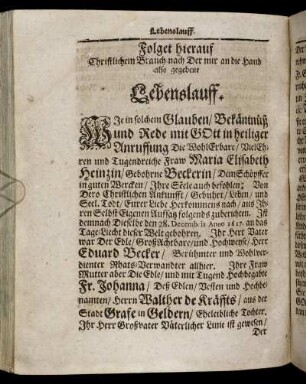 Lebenslauff.
Folget hierauf
Christlichem Brauch nach Der mir an die Hand
also gegebene
Lebenslauff.
WIe in solchem Glauben / Bekäntnüß
und Rede mit GOtt in heiliger
Anruffung Die WohlErbare / VielEh-
ren und Tugendreiche Fraw Maria Elisabeth
Heintzin / Gebohrne Beckerin / Dem Schöpffer
in guten Wercken / Ihre Seele auch befohlen; Von
Dero Christlichen Ankunfft / Gebuhrt / Leben / und
Seel. Todt / Eurer Liebe Herkommens nach / aus Ih-
ren Selbst Eigenen Auffsatz folgends zuberichten. Ist
demnach Dieselbe den 28. Decembris Anno 1617. an das
Tage-Liecht dieser Welt gebohren. Ihr Herr Vater
war Der Edle / GroßAchtbare / und Hochweise / Herr
Eduard Becker / Berühmter und Wohlver-
dienter Rhats-Verwandter allhier. Ihre Fraw
Mutter aber Die Edle / und mit Tugend Hochbegabte
Fr. Johanna / Deß Edlen / Vesten und Hochbe-
namten / Herrn Walther de Kräffts / aus der
Stadt Grafe in Geldern / Eheleibliche Tochter.
Ihr Herr Großvater Väterlicher Linie ist gewesen /
Der